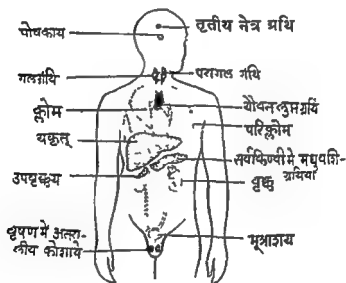 पोषकाय
तृतीय नेत्र ग्रंथि
गलग्रंथि
परागल ग्रंथि
क्लोम
यौवनलुप्तग्रंथि
परिक्लोम
यकृत्
सर्वकिण्वी मे मधुवशि-
ग्रंथियां
उपवृक्क्य
वृक्क
वृषण मे अन्तरा-
लीय कोशायें
मूत्राशय